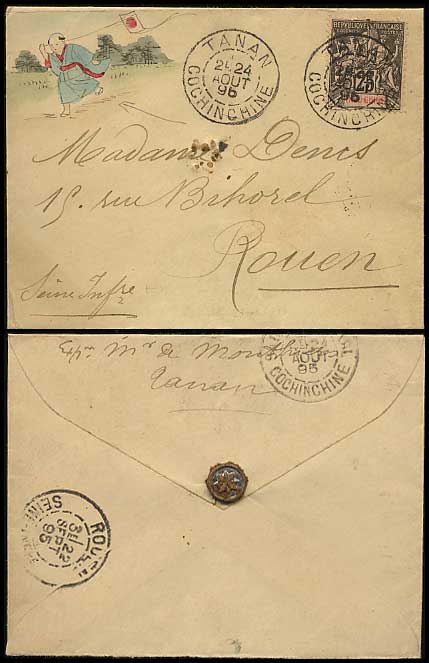 TANAN
2E 24
AOUT
95
COCHINCHINE
REPUBLIQUE FRANCAISE
TANAN
25
95
COCHINCHINE
Madame Denis
15 rue Bihorel
Rouen
Seine Infre
Mr de
Tanan
24
AOUT
95
COCHINCHINE
ROUEN
3E 22
SEPT
95
SEINE